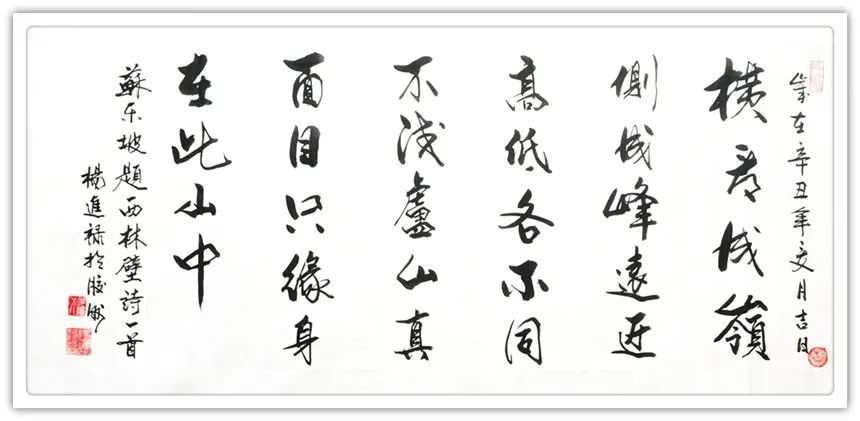 歲在辛丑年夏月吉日
横看成嶺
側成峰遠近
高低各不同
不識盧山真
面目只緣身
在此山中
蘇东坡題西林壁詩一首
楊進禄於胶州